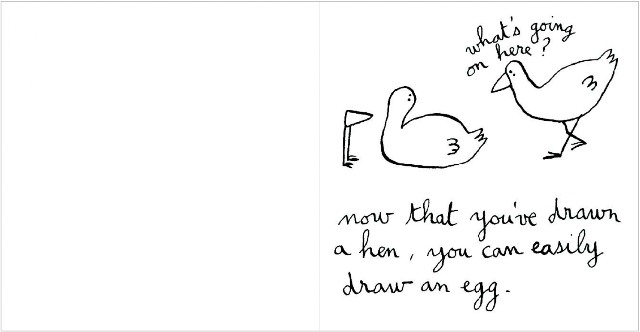 what's going
on here?
now that you've drawn
a hen, you can easily
draw an egg.